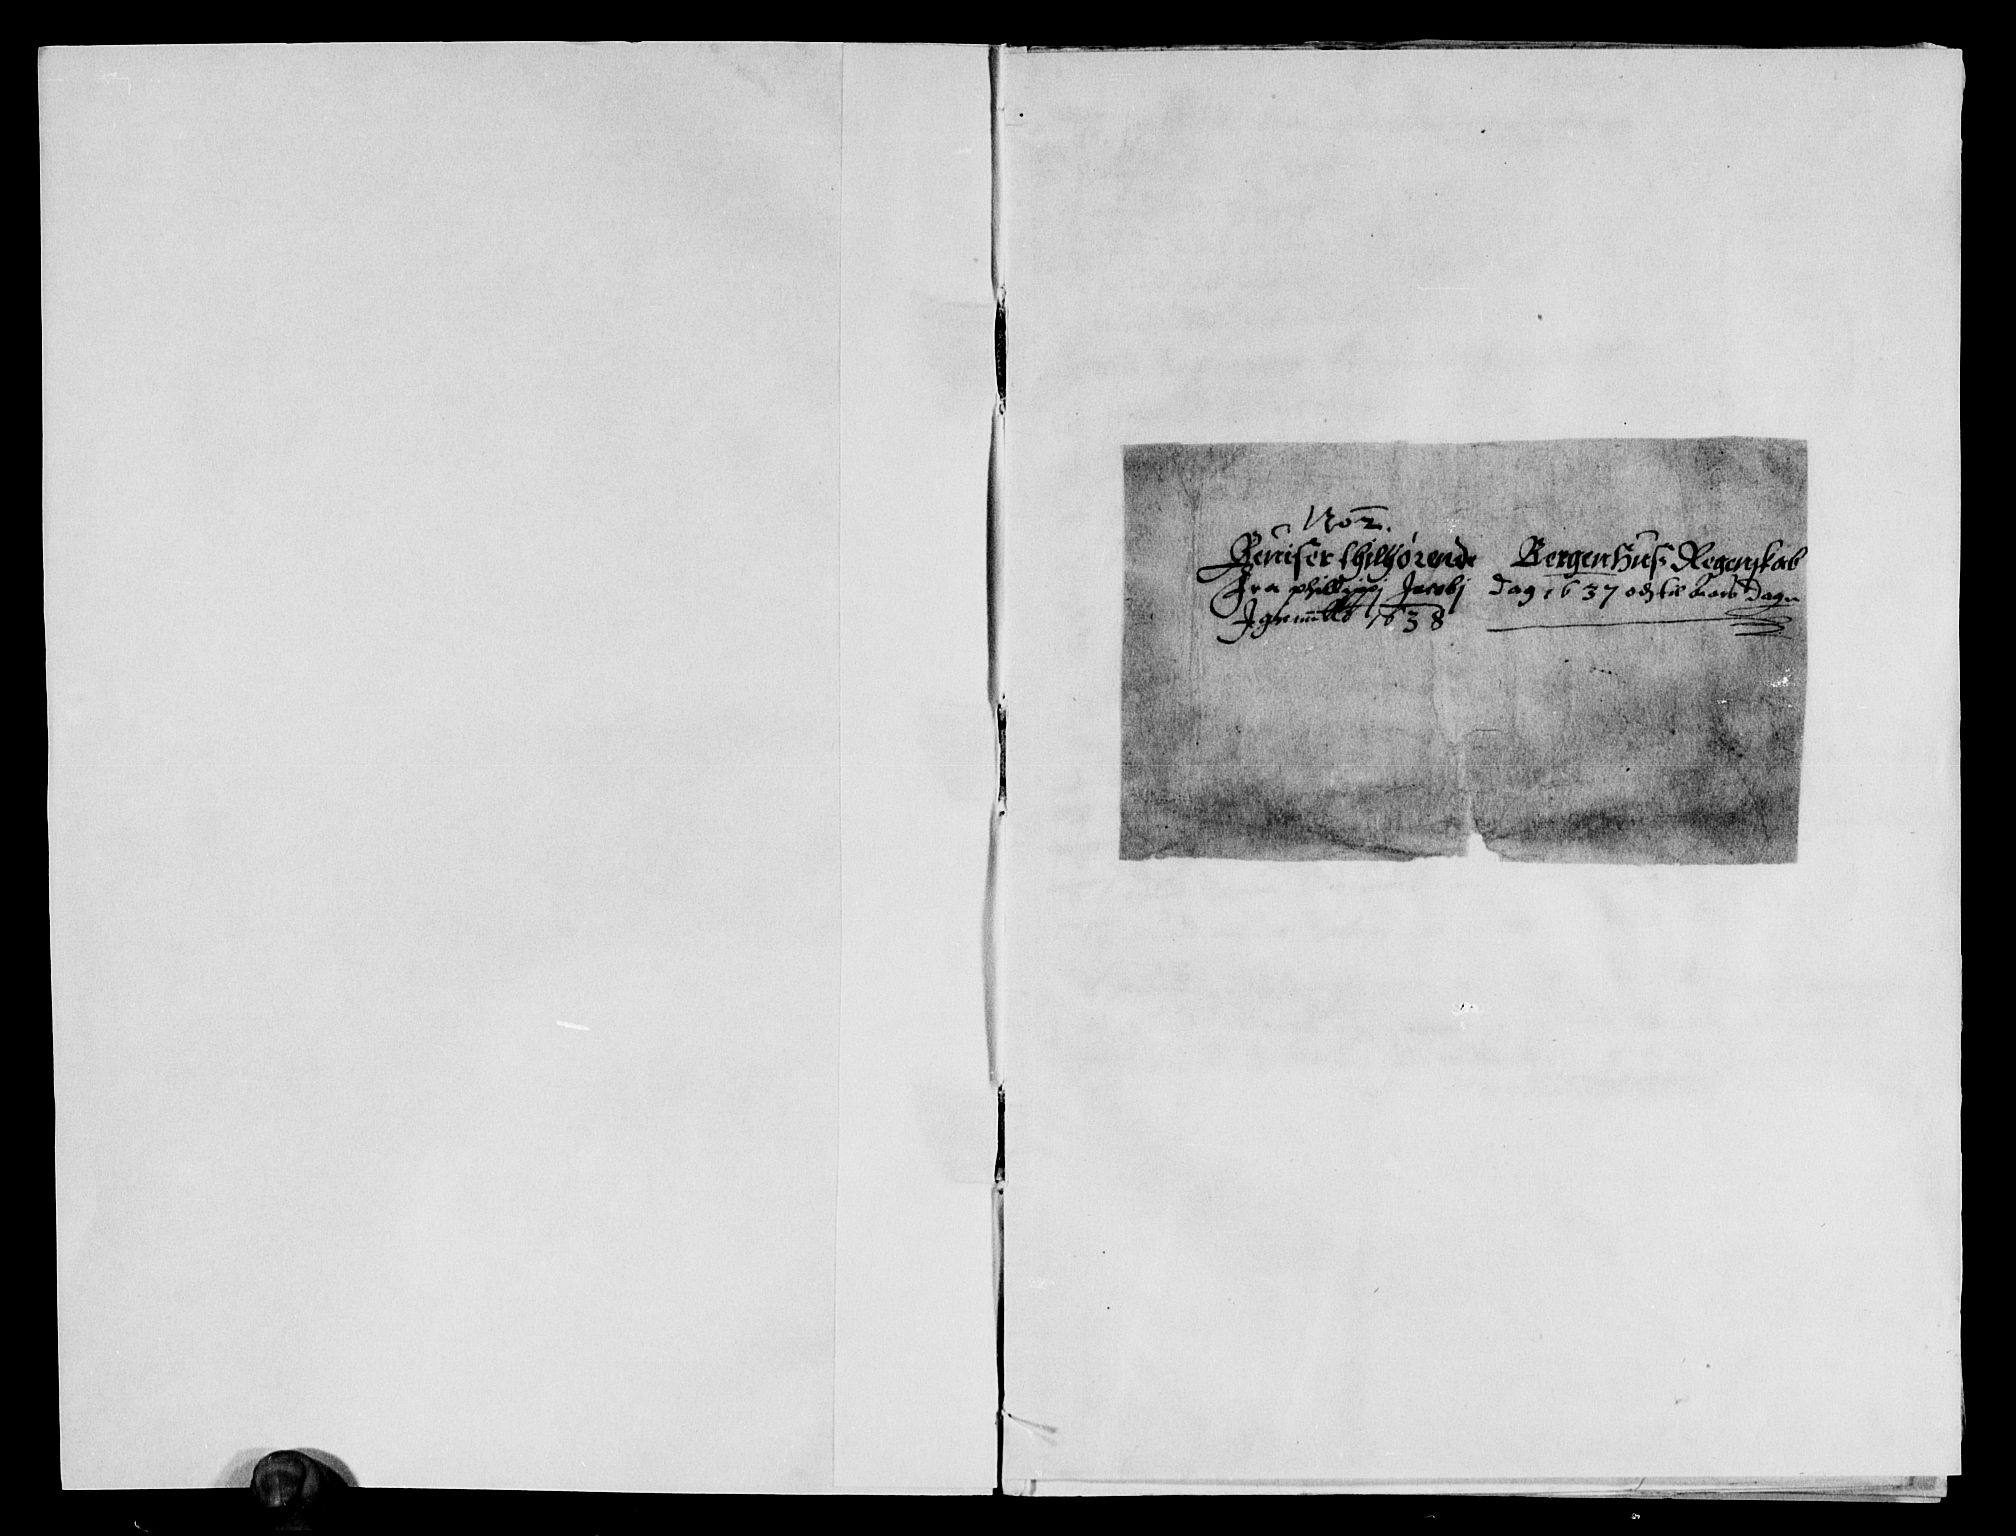 No 2.
Beuiser thilhørende Bergenhus Regenskab
Fra phillippj Jacobj dag 1637 och til Aars dagen
Igien 1638